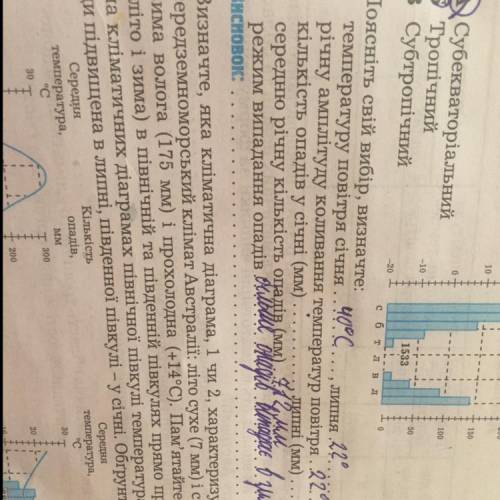 Субекваторіальний
Тропічний
Субтропічний
Поясніть свій вибір, визначте:
температуру повітря січня 40°С, липня 22°
річну амплітуду коливання температур повітря 22°
кількість опадів у січні (мм) липні (мм)
середню річну кількість опадів (мм)
режим випадання опадів
ВИСНОВОК:
Визначте, яка кліматична діаграма, 1 чи 2, характеризу
середземноморський клімат Австралії: літо сухе (7 мм) і с
зима волога (175 мм) і прохолодна (+14°С). Пам'ятайте
літо і зима) в північній та південній півкулях прямо пр
на кліматичних діаграмах північної півкулі температур
ди підвищена в липні, південної півкулі – у січні. Обґрунт
10
0
–10
–20
150
100
50
0
1533
с б т л в л
Середня
температура,
°С
30
Кількість
опадів,
мм
300
200
Середня
температура,
°С
30
20